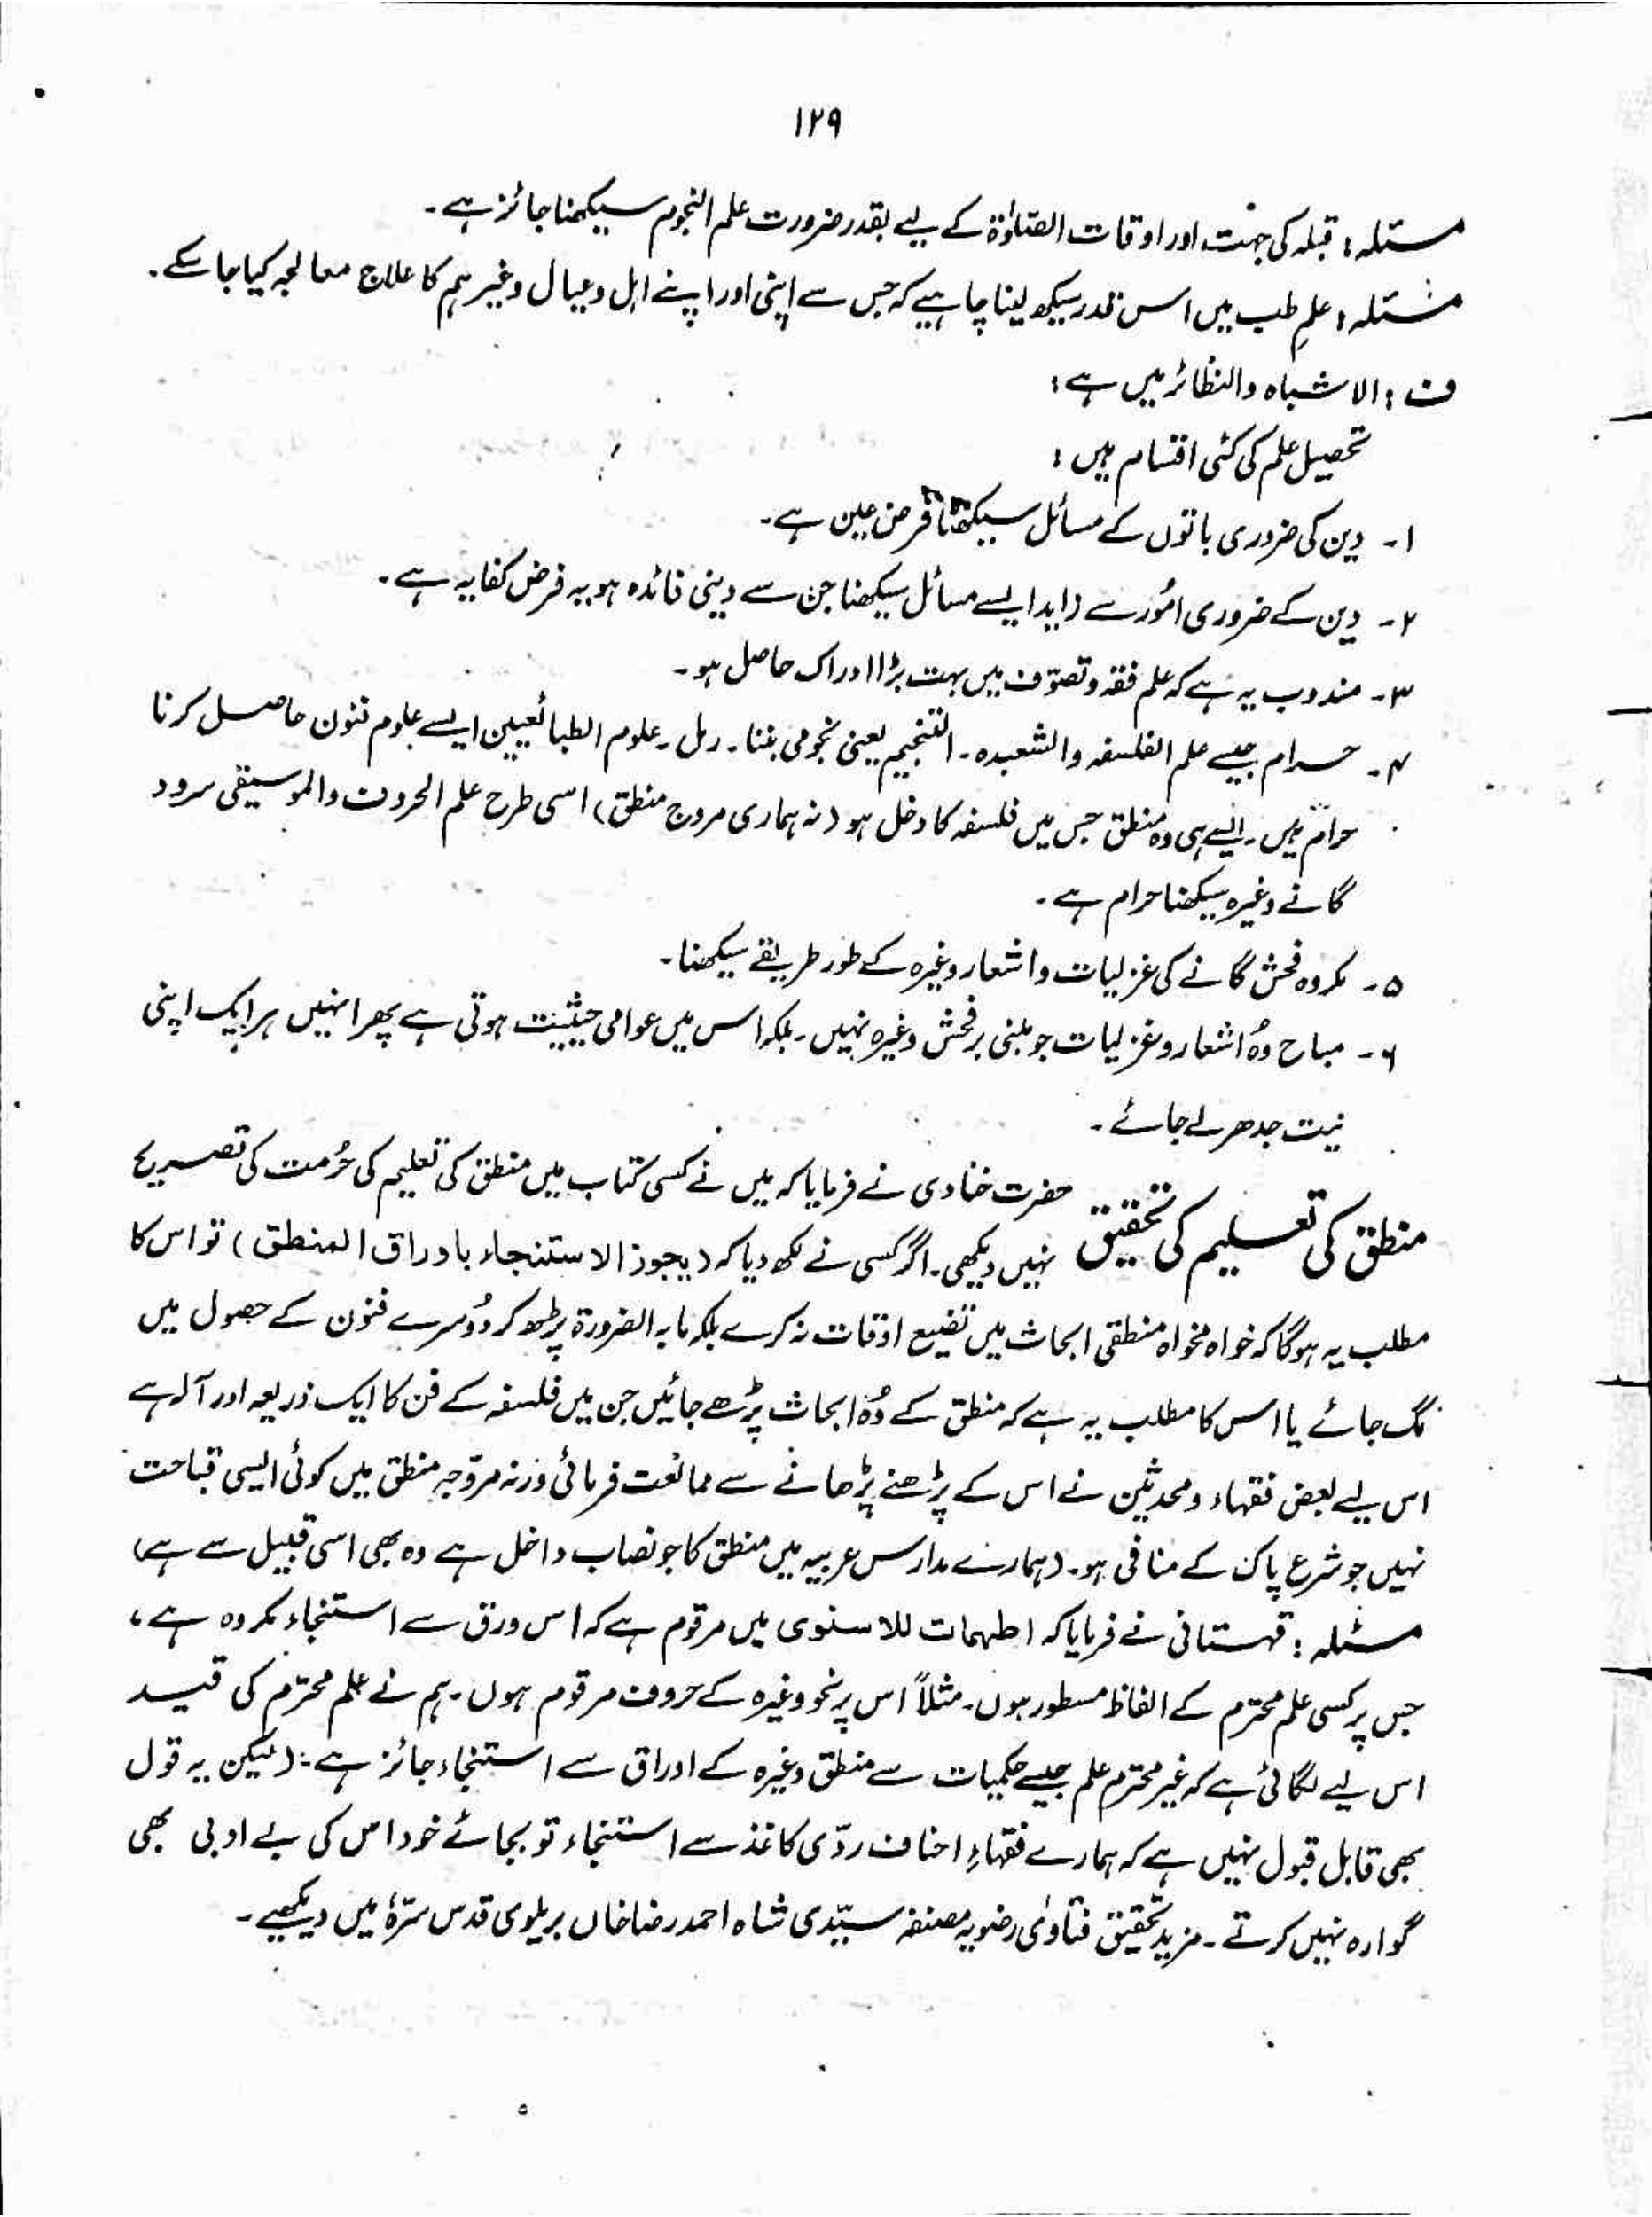 ۱۲۹
مسئلہ: قبلہ کی جہت اور اوقات الصلوٰۃ کے لیے بقدر ضرورت علم النجوم سیکھنا جائز ہے۔
مسئلہ: علمِ طب میں اس قدر سیکھ لینا چاہیے کہ جس سے اپنی اور اپنے اہل وعیال وغیرہم کا علاج معالجہ کیا جا سکے۔
ف: الاشباہ والنظائر میں ہے:
تحصیل علم کی کئی اقسام ہیں:
۱۔ دین کی ضروری باتوں کے مسائل سیکھنا فرض عین ہے۔
۲۔ دین کے ضروری امُور سے زاید ایسے مسائل سیکھنا جن سے دینی فائدہ ہو یہ فرض کفایہ ہے۔
۳۔ مندوب یہ ہے کہ علم فقہ و تصوّف میں بہت بڑا ادراک حاصل ہو۔
۴۔ حرام جیسے علم الفلسفہ والشعبدہ۔ التنجیم یعنی نجومی بننا۔ رمل۔ علوم الطبائعیین ایسے علوم فنون حاصل کرنا
حرام ہیں۔ ایسے ہی وہ منطق جس میں فلسفہ کا دخل ہو (نہ ہماری مروج منطق) اسی طرح علم الحروف والموسیقی سرود
گانے وغیرہ سیکھنا حرام ہے۔
۵۔ مکروہ فحش گانے کی غزلیات واشعار وغیرہ کے طور طریقے سیکھنا۔
۶۔ مباح وُہ اشعار وغزلیات جو مبنی بر فحش وغیرہ نہیں۔ بلکہ اس میں عوامی حیثیت ہوتی ہے پھر انہیں ہر ایک اپنی
نیت جدھر لے جائے۔
منطق کی تعلیم کی تحقیق حضرت خادی نے فرمایا کہ میں نے کسی کتاب میں منطق کی تعلیم کی حُرمت کی تصریح
نہیں دیکھی۔ اگر کسی نے لکھ دیا کہ (یجوز الاستنجاء باوراق المنطق) تو اس کا
مطلب یہ ہوگا کہ خواہ مخواہ منطقی ابحاث میں تضیع اوقات نہ کرے بلکہ مابہ الضرورۃ پڑھ کر دُوسرے فنون کے حصول میں
لگ جائے یا اس کا مطلب یہ ہے کہ منطق کے وُہ ابحاث پڑھے جائیں جن میں فلسفہ کے فن کا ایک ذریعہ اور آلہ ہے
اس لیے بعض فقہاء ومحدثین نے اس کے پڑھنے پڑھانے سے ممانعت فرمائی ورنہ مروّجہ منطق میں کوئی ایسی قباحت
نہیں جو شرع پاک کے منافی ہو۔ (ہمارے مدارس عربیہ میں منطق کا جو نصاب داخل ہے وہ بھی اسی قبیل سے ہے)
مسئلہ: قہستانی نے فرمایا کہ اطہمات للاسنوی میں مرقوم ہے کہ اس ورق سے استنجاء مکروہ ہے،
جس پر کسی علم محترم کے الفاظ مسطور ہوں۔ مثلاً اس پر نحو وغیرہ کے حروف مرقوم ہوں۔ ہم نے علم محترم کی قید
اس لیے لگائی ہے کہ غیر محترم علم جیسے حکمیات سے منطق وغیرہ کے اوراق سے استنجاء جائز ہے۔ (لیکن یہ قول
بھی قابل قبول نہیں ہے کہ ہمارے فقہاءِ احناف ردّی کاغذ سے استنجاء تو بجائے خود اس کی بے ادبی بھی
گوارہ نہیں کرتے۔ مزید تحقیق فتاوٰی رضویہ مصنفہ سیّدی شاہ احمد رضا خاں بریلوی قدس سرّہٗ میں دیکھیے۔